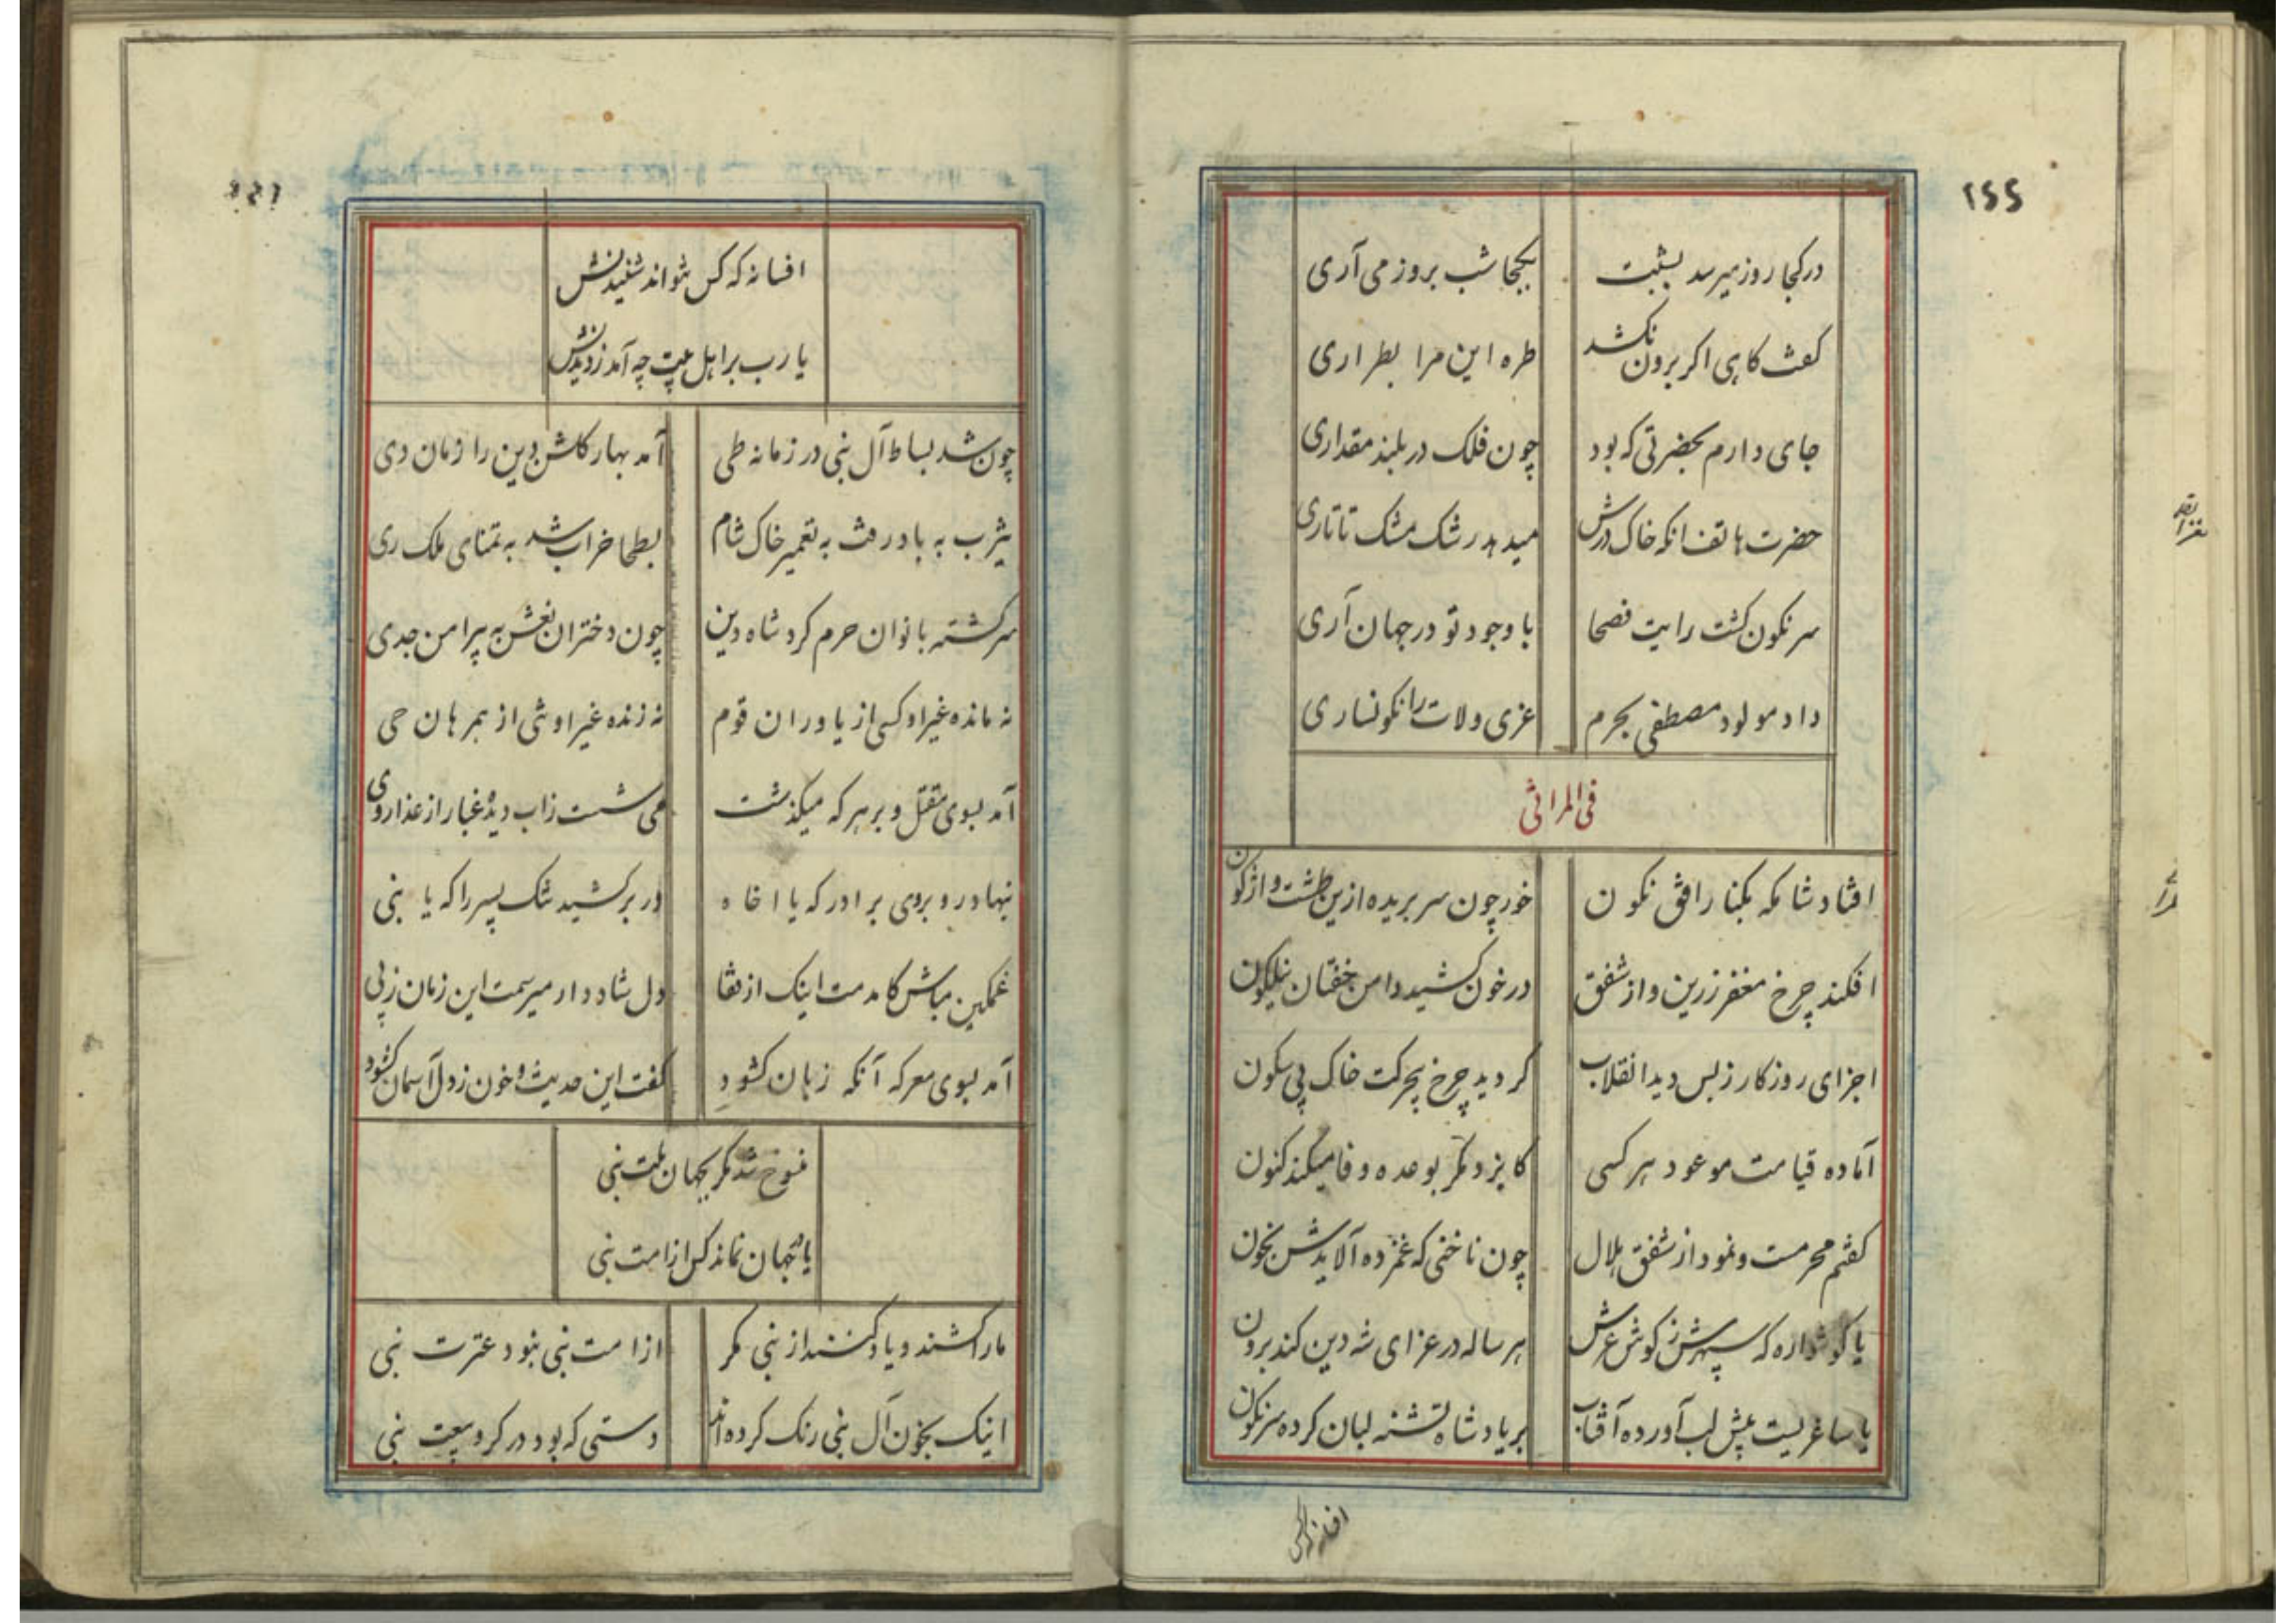 ۲۵۵
در کجا روز میرسد بشبت بکجا شب بروز می آری
کفت کاهی اکر برون نکشد طره این مرا بطراری
جای دارم بحضرتی که بود چون فلک در بلند مقداری
حضرت هاتف انکه خاک درش میدهد رشک مشک تاتاری
سرنکون کشت رایت فصحا با وجود تو در جهان آری
داد مولود مصطفی بحرم عزی ولات را نکونساری
فی المراثی
افتاد شامکه بکنار افق نکون خور چون سر بریده ازین طشت واژکون
افکند چرخ مغفر زرین و از شفق در خون کشید دامن خفتان نیلکون
اجزای روزکار ز بس دید انقلاب کردید چرخ بیحرکت خاک بی سکون
آماده قیامت موعود هر کسی کایزد مکر بوعده وفا میکند کنون
کفتم محرمست و نمود از شفق هلال چون ناخنی که غمزده آلایدش بخون
یا کوشواره که سپهرش ز کوش عرش هر ساله در عزای شه دین کند برون
یا ساغریست پیش لب آورده آفتاب بر یاد شاه تشنه لبان کرده سرنکون
افسانه که کس نتواند شنیدنش
یا رب بر اهل بیت چه آمد ز دیدنش
چون شد بساط آل نبی در زمانه طی آمد بهار کلشن دین را زمان دی
یثرب به باد رفت به تعمیر خاک شام بطحا خراب شد به تمنای ملک ری
سرکشته بانوان حرم کرد شاه دین چون دختران نعش به پیرامن جدی
نه مانده غیر او کسی از یاوران قوم نه زنده غیر او شی از همرهان حی
آمد بسوی مقتل و بر هر که میکذشت می شست زاب دیده غبار از عذار وی
بنهاد رو بروی برادر که یا اخاه در بر کشید تنک پسر را که یا بنی
غمکین مباش کامدمت اینک از قفا دل شاد دار میرسمت این زمان ز پی
آمد بسوی معرکه آنکه زبان کشود کفت این حدیث و خون ز دل آسمان کشود
منسوخ شد مکر بجهان ملت نبی
یا در جهان نماند کس از امت نبی
ما را کشند و یاد کنند از نبی مکر از امت نبی نبود عترت نبی
اینک بخون آل نبی رنک کرده اند دستی که بود در کرو بیعت نبی